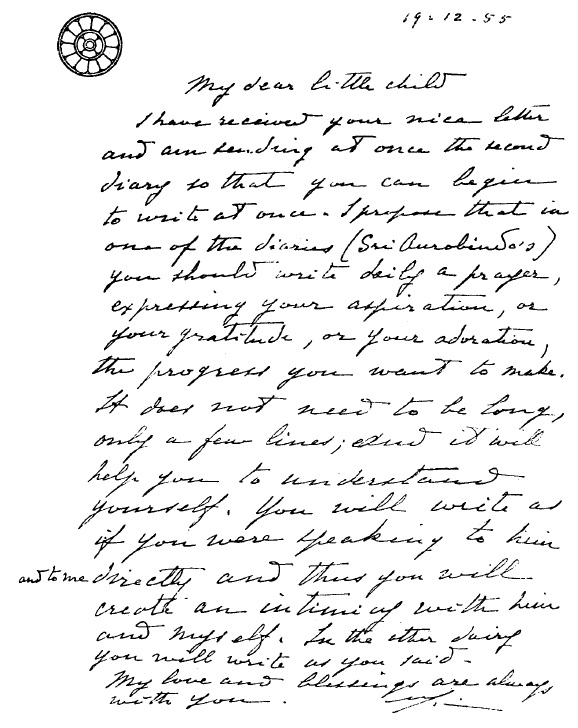 19-12-55
My dear little child
I have received your nice letter
and am sending at once the second
diary so that you can begin
to write at once. I propose that in
one of the diaries (Sri Aurobindo's)
you should write daily a prayer,
expressing your aspiration, or
your gratitude, or your adoration,
the progress you want to make.
It does not need to be long,
only a few lines; and it will
help you to understand
yourself. You will write as
if you were speaking to him
and to me directly and thus you will
create an intimacy with him
and myself. In the other dairy
you will write as you said.
My love and blessings are always
with you.